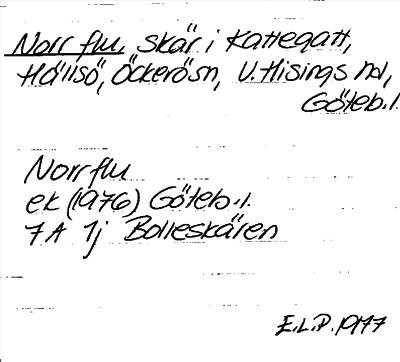 Norr flu, skär i Kattegatt,
Hällsö, Öckerö sn, V. Hisings hd,
Göteb. l.
Norr flu
ek (1976) Göteb. l.
7A 1j Bolleskären
E.L.P. 1977